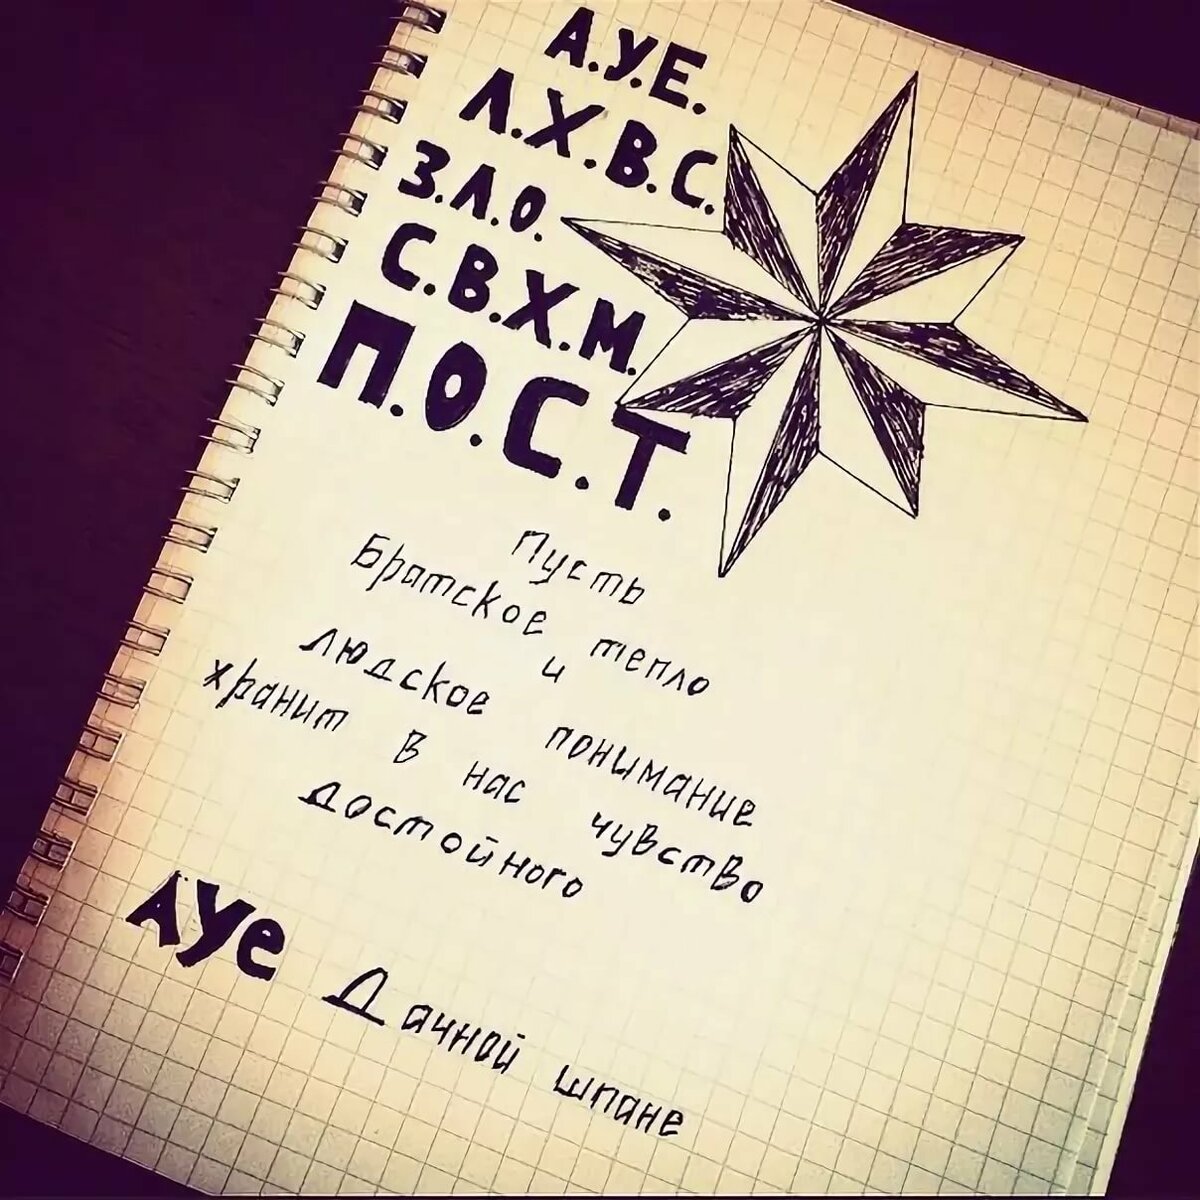 А.У.Е.
Л.Х.В.С.
З.Л.О.
С.В.Х.М.
П.О.С.Т.
Пусть
Братское тепло
и
людское понимание
хранит в нас чувство
достойного
АУе Дачной шпане